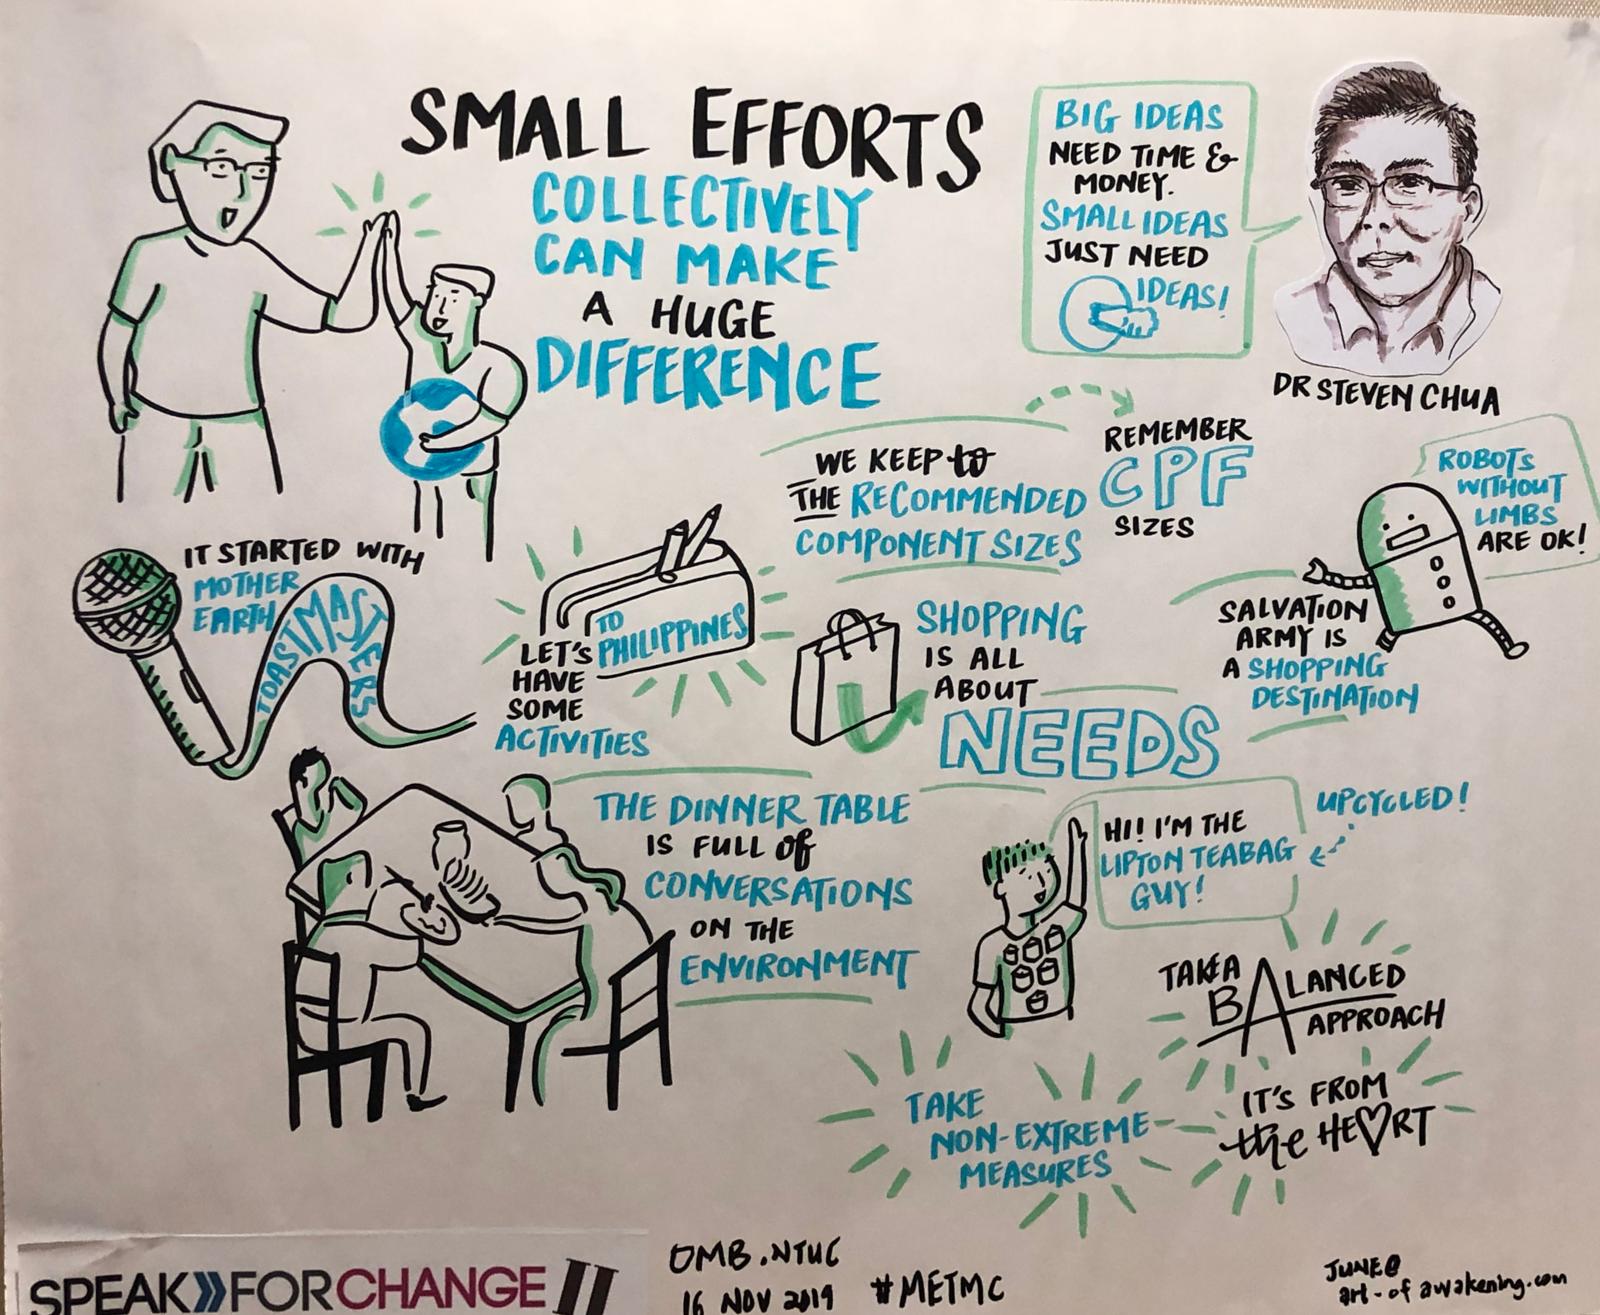 SMALL EFFORTS
COLLECTIVELY
CAN MAKE
A HUGE
DIFFERENCE
BIG IDEAS
NEED TIME &
MONEY.
SMALL IDEAS
JUST NEED
IDEAS!
DR STEVEN CHUA
WE KEEP to
THE RECOMMENDED
COMPONENT SIZES
REMEMBER
CPF
SIZES
ROBOTS
WITHOUT
LIMBS
ARE OK!
IT STARTED WITH
MOTHER
EARTH
TOASTMASTERS
TO
PHILIPPINES
LET'S
HAVE
SOME
ACTIVITIES
SHOPPING
IS ALL
ABOUT
NEEDS
SALVATION
ARMY IS
A SHOPPING
DESTINATION
THE DINNER TABLE
IS FULL of
CONVERSATIONS
ON THE
ENVIRONMENT
HI! I'M THE
LIPTON TEABAG
GUY!
UPCYCLED!
TAKE A
BALANCED
APPROACH
TAKE
NON-EXTREME
MEASURES
IT'S FROM
the HEART
SPEAK»FORCHANGE II
OMB.NTUC
16 NOV 2019 #METMC
JUNE@
art-of awakening.com